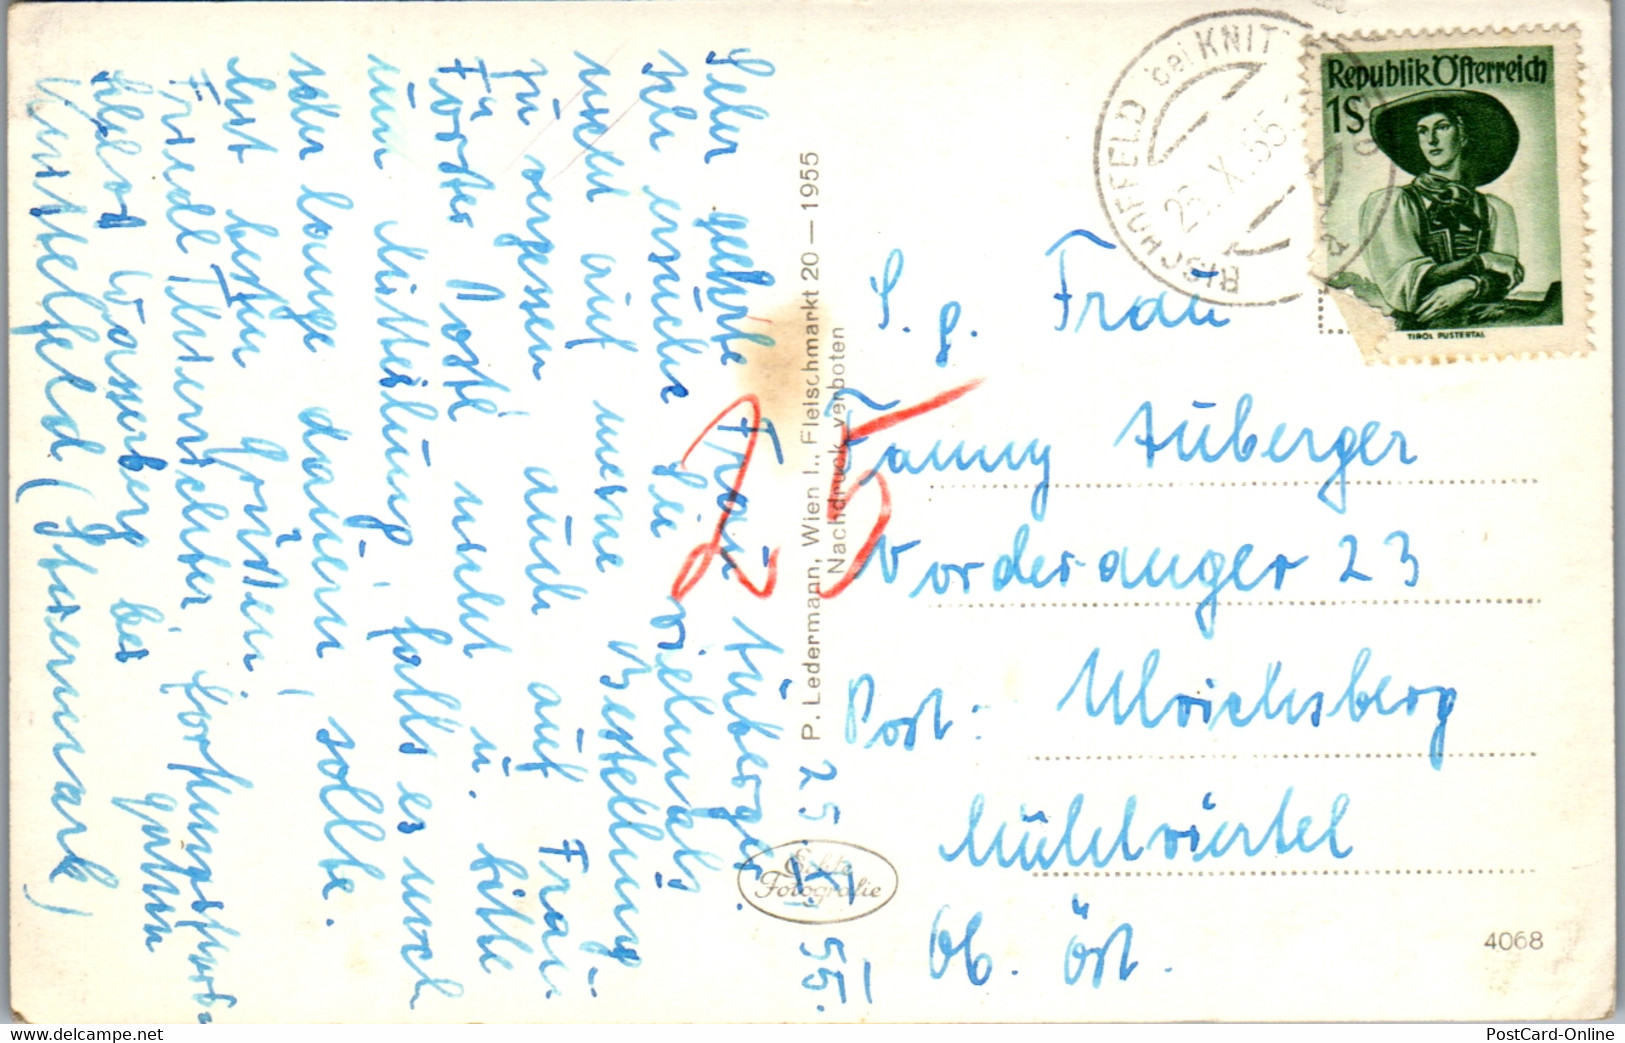 25. XI. 55.
Sehr geehrte Frau Auberger.
Ich ersuche Sie vielmals
nicht auf meine Bestellung
zu vergessen, auch auf Frau
Förster Poste nicht u. bitte
um Mitteilung, falls es noch
sehr lange dauern sollte.
mit besten Grüßen
Friedl
Wasserberg bei
(Steiermark)
P. Ledermann, Wien I., Fleischmarkt 20 — 1955
Nachdruck verboten
Echte
Fotografie
25
BISCHOFFELD bei KNIT
25. X. 55
Republik Österreich
1S
TIROL PUSTERTAL
S. g. Frau
Fanny Auberger
Vorderanger 23
Post: Ulrichsberg
Mühlviertel
Ob. Öst.
4068
www.delcampe.net
PostCard-Online